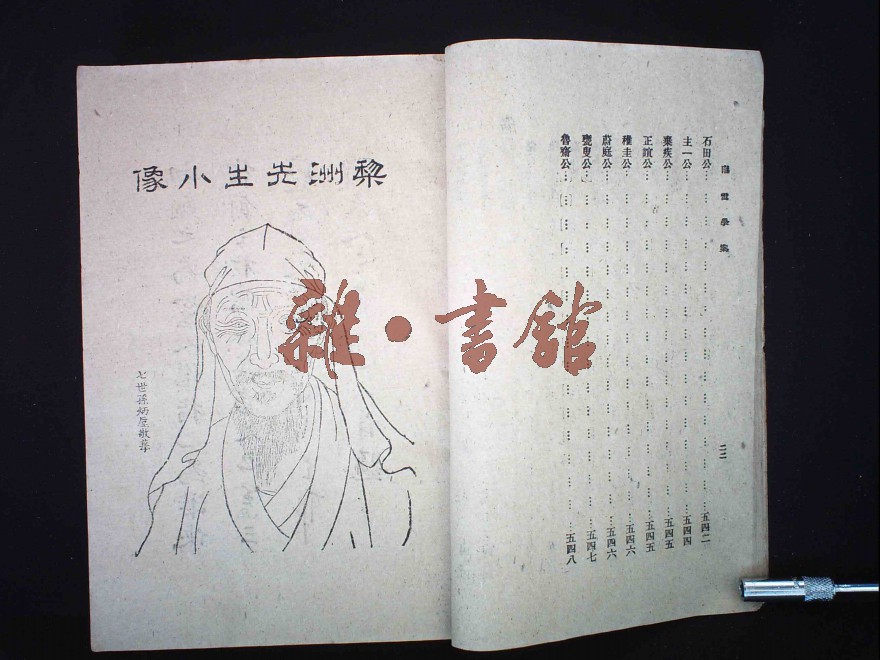 南雷學案
二二
石田公……五四二
主一公……五四四
棄疾公……五四五
正誼公……五四五
稚圭公……五四六
蔚庭公……五四六
甕叟公……五四七
魯齋公……五四八
黎洲先生小像
七世孫炳垕敬摹
雜·書館